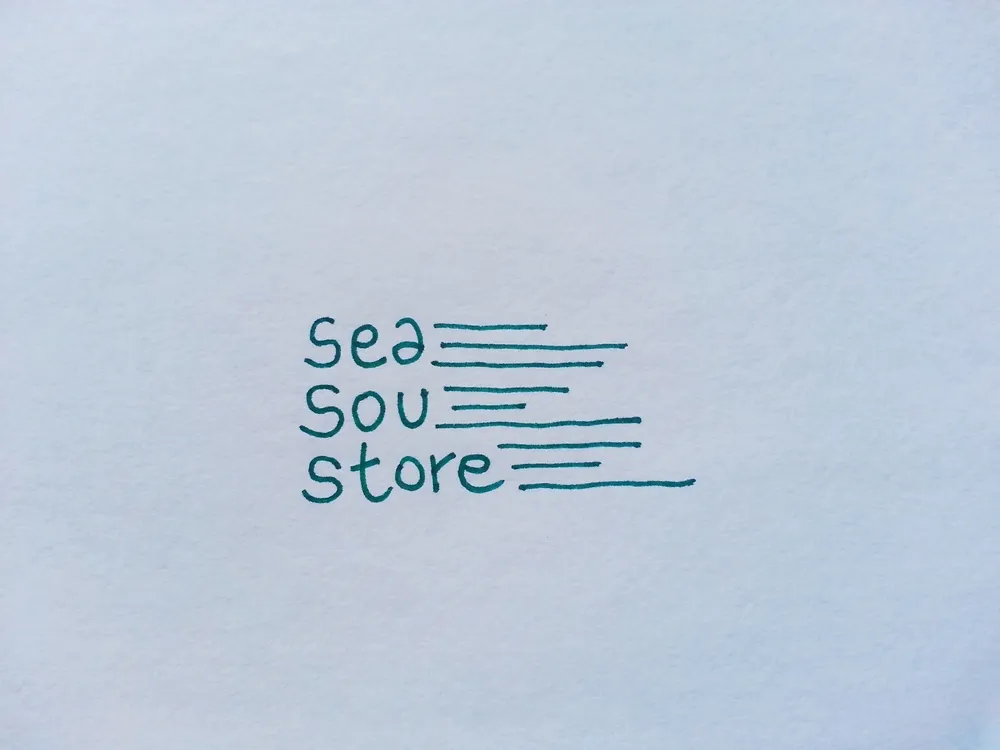 sea
sou
store